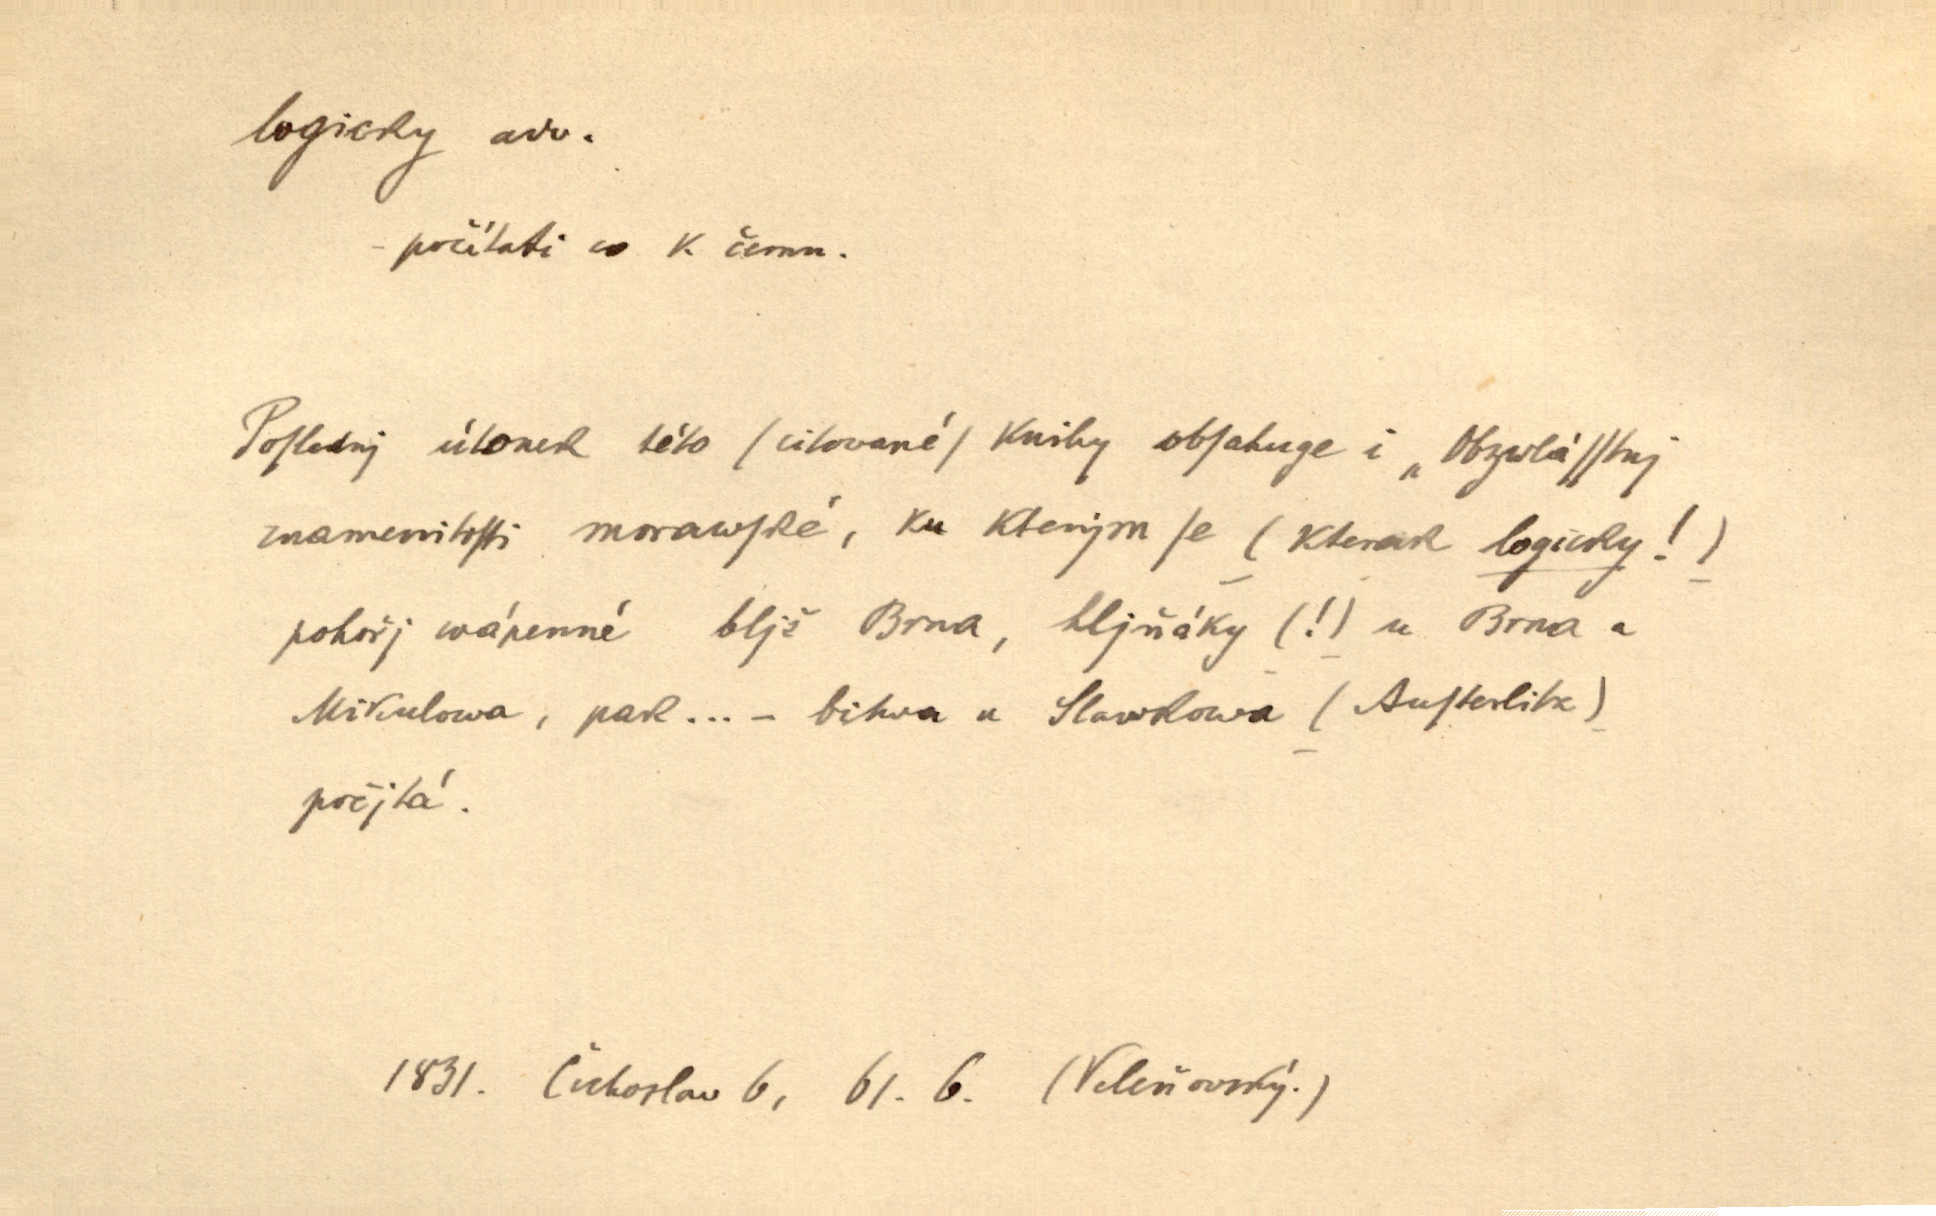 logicky adv.
- počítati co k čemu.
Poſlednj útonek této /citované/ knihy obſahuge i „Obzwláſſtnj
znamenitoſti morawſké, ku kterým ſe (kterak logicky!)
pohořj wápenné bljž Brna, hljňáky (!) u Brna a
Mikulowa, pak... - bitwa u Slawkowa (Auſterlitz)
počjtá.
1831. Čechoslav 6, 61. 6. (Veleňovský.)